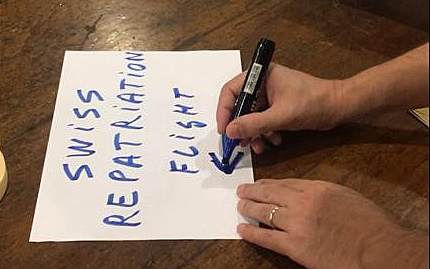 SWiSS
REPATRiATiON
FLiGHT